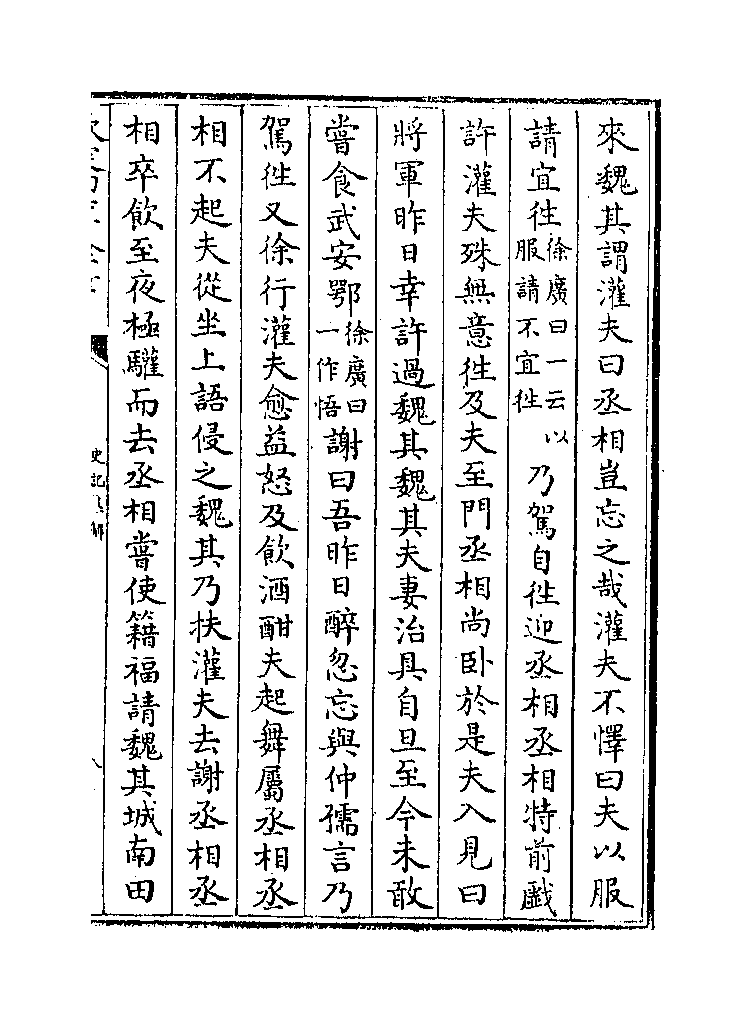 來魏其謂灌夫曰丞相豈忘之哉灌夫不懌曰夫以服
請宜徃徐廣曰一云以服請不宜徃乃駕自徃迎丞相丞相特前戲
許灌夫殊無意徃及夫至門丞相尚卧於是夫入見曰
將軍昨日幸許過魏其魏其夫妻治具自旦至今未敢
嘗食武安鄂徐廣曰一作悟謝曰吾昨日醉忽忘與仲孺言乃
駕徃又徐行灌夫愈益怒及飲酒酣夫起舞屬丞相丞
相不起夫從坐上語侵之魏其乃扶灌夫去謝丞相丞
相卒飲至夜極驩而去丞相嘗使籍福請魏其城南田
史記集解